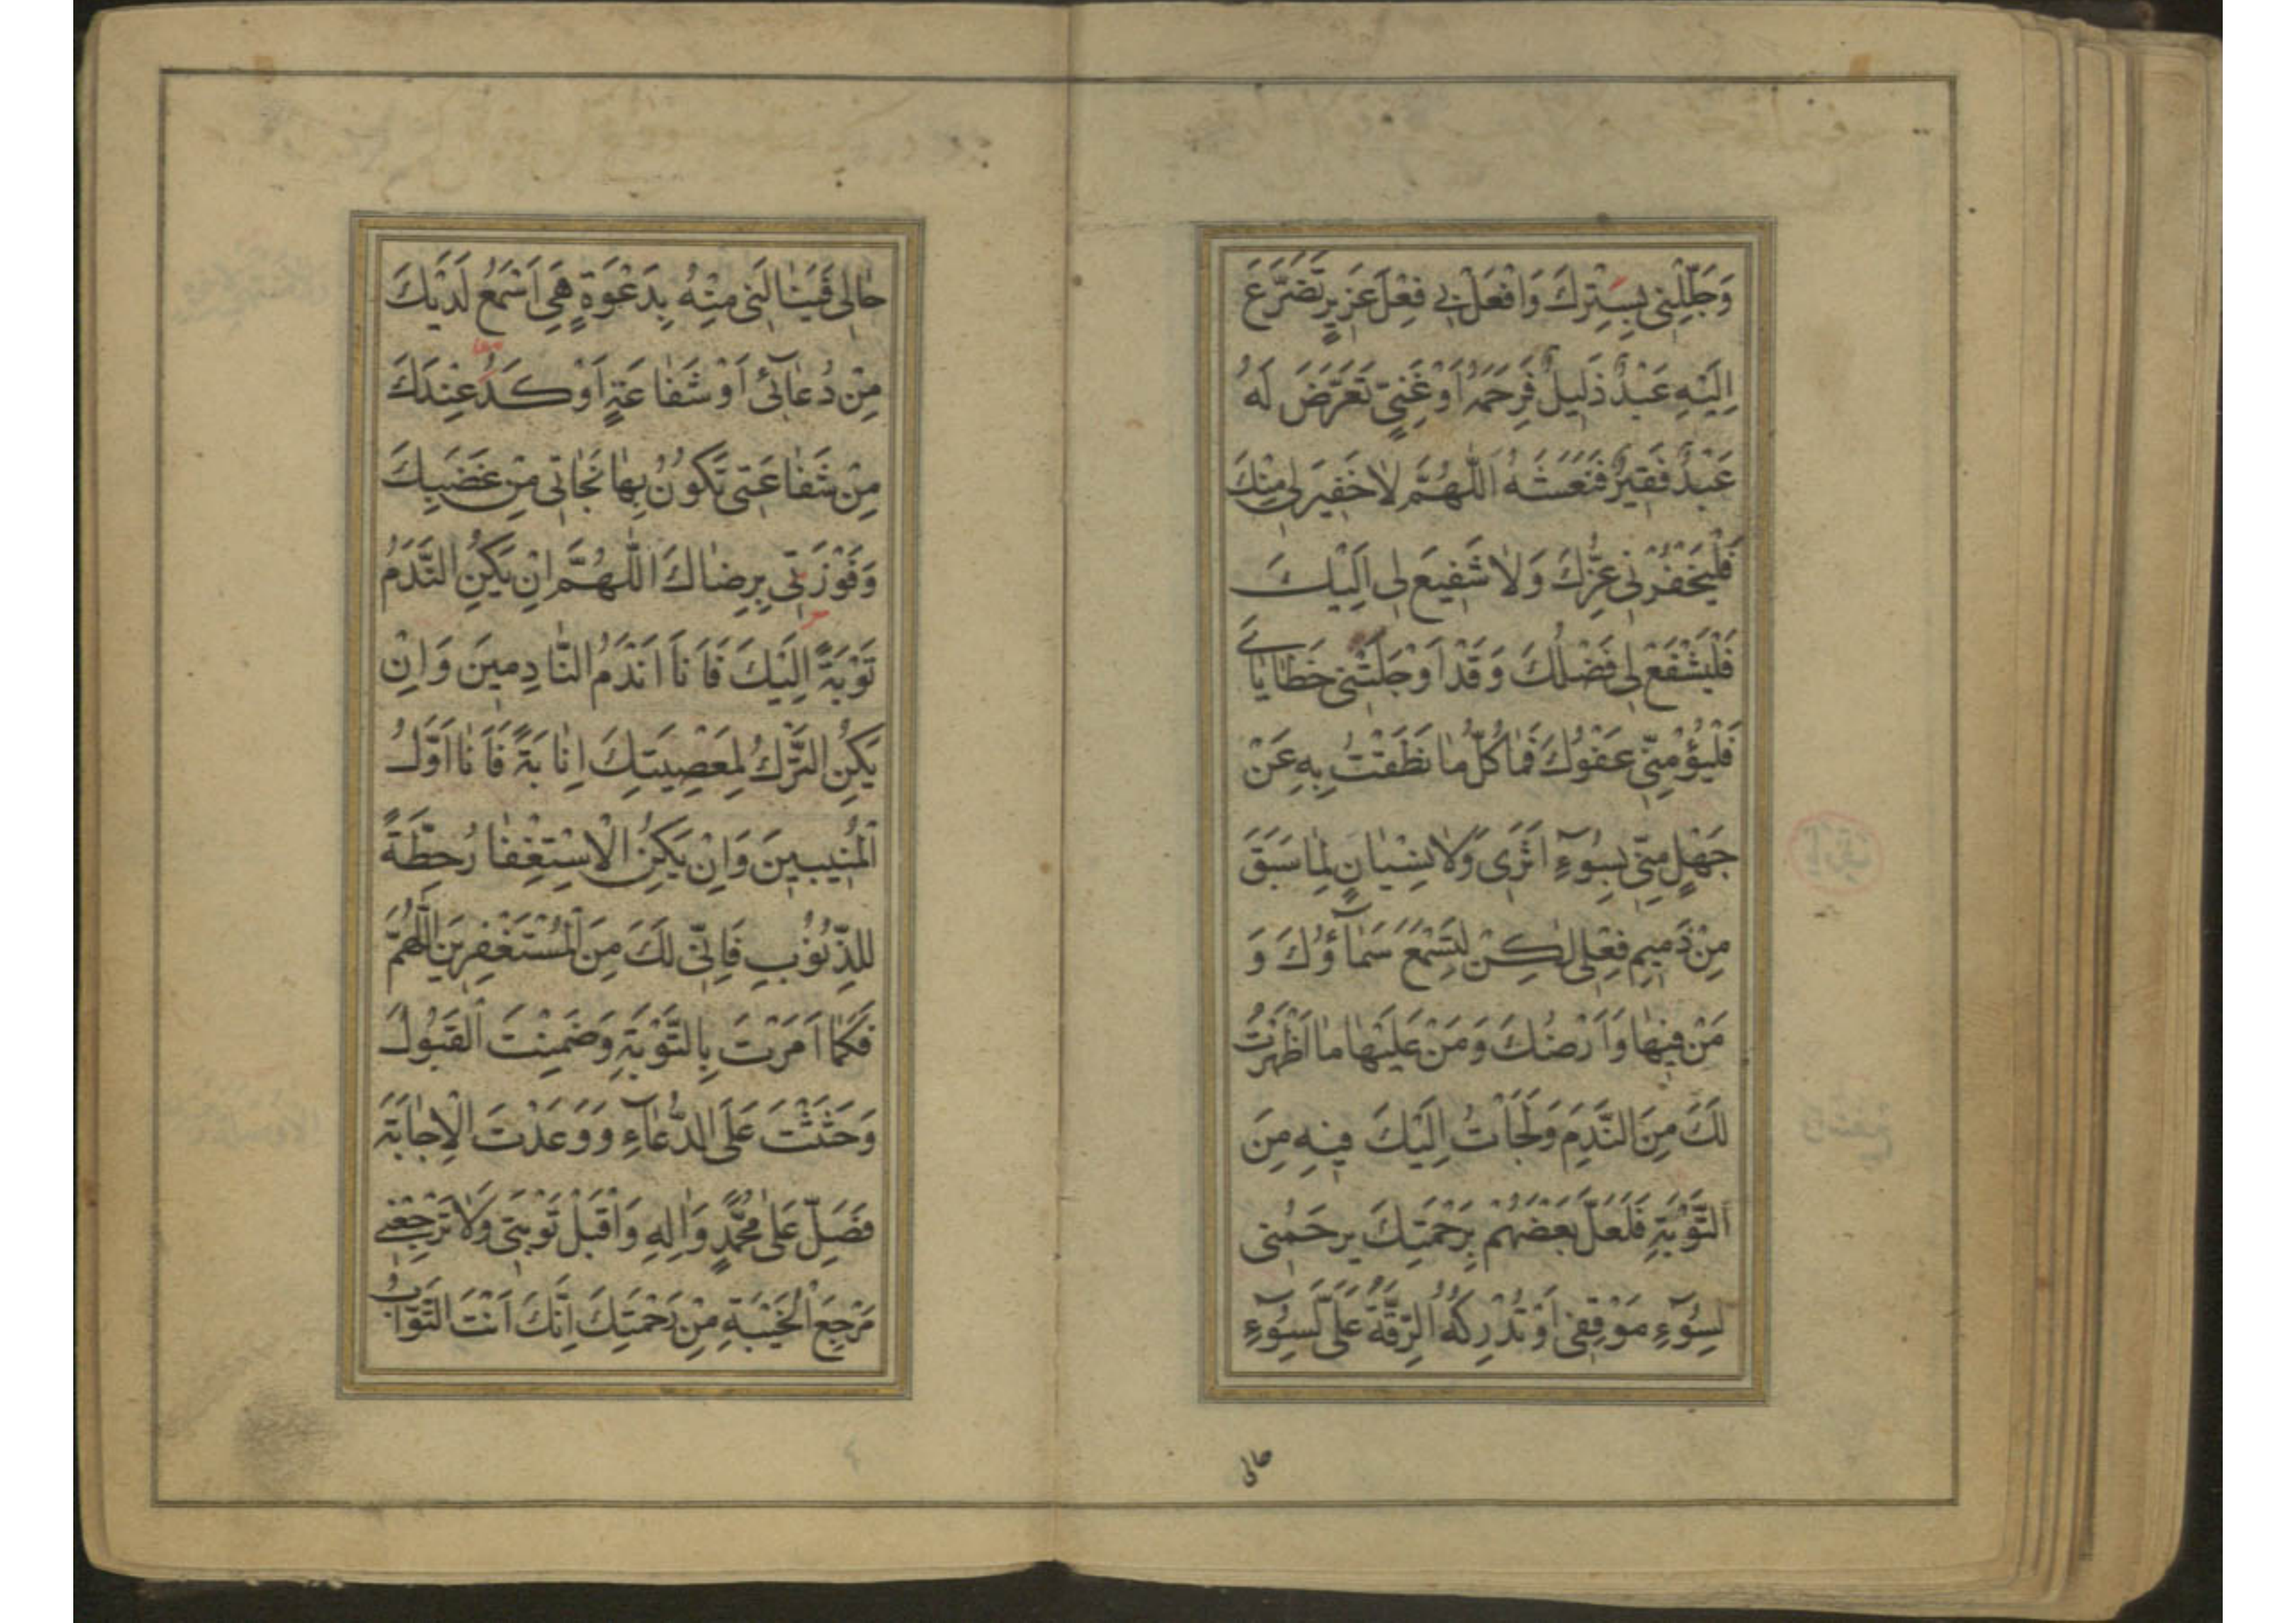 وَجَلِّلْنِی بِسِتْرِكَ وَافْعَلْ بِی فِعْلَ عَزِیزٍ تَضَرَّعَ
اِلَیْهِ عَبْدٌ ذَلِیلٌ فَرَحِمَهُ اَوْ غَنِیٍّ تَعَرَّضَ لَهُ
عَبْدٌ فَقِیرٌ فَنَعَشَهُ اَللّٰهُمَّ لَا خَفِیرَ لِی مِنْكَ
فَلْیَخْفُرْنِی عِزُّكَ وَلَا شَفِیعَ لِی اِلَیْكَ
فَلْیَشْفَعْ لِی فَضْلُكَ وَقَدْ اَوْجَلَتْنِی خَطَایَایَ
فَلْیُؤْمِنِّی عَفْوُكَ فَمَا كُلُّ مَا نَطَقْتُ بِهِ عَنْ
جَهْلٍ مِنِّی بِسُوۤءِ اَثَرِی وَلَا نِسْیَانٍ لِمَا سَبَقَ
مِنْ ذَمِیمِ فِعْلِی لٰكِنْ لِتَسْمَعَ سَمَاۤؤُكَ وَ
مَنْ فِیهَا وَاَرْضُكَ وَمَنْ عَلَیْهَا مَا اَظْهَرْتُ
لَكَ مِنَ النَّدَمِ وَلَجَأْتُ اِلَیْكَ فِیهِ مِنَ
التَّوْبَةِ فَلَعَلَّ بَعْضَهُمْ بِرَحْمَتِكَ یَرْحَمُنِی
لِسُوۤءِ مَوْقِفِی اَوْ تُدْرِكُهُ الرِّقَّةُ عَلَیَّ لِسُوۤءِ
حالی
حَالِی فَیَنَالَنِی مِنْهُ بِدَعْوَةٍ هِیَ اَسْمَعُ لَدَیْكَ
مِنْ دُعَاۤئِی اَوْ شَفَاعَةٍ اَوْكَدُ عِنْدَكَ
مِنْ شَفَاعَتِی تَكُونُ بِهَا نَجَاتِی مِنْ غَضَبِكَ
وَفَوْزَتِی بِرِضَاكَ اَللّٰهُمَّ اِنْ یَكُنِ النَّدَمُ
تَوْبَةً اِلَیْكَ فَاَنَا اَنْدَمُ النَّادِمِینَ وَاِنْ
یَكُنِ التَّرْكُ لِمَعْصِیَتِكَ اِنَابَةً فَاَنَا اَوَّلُ
الْمُنِیبِینَ وَاِنْ یَكُنِ الْاِسْتِغْفَارُ حِطَّةً
لِلذُّنُوبِ فَاِنِّی لَكَ مِنَ الْمُسْتَغْفِرِینَ اَللّٰهُمَّ
فَكَمَا اَمَرْتَ بِالتَّوْبَةِ وَضَمِنْتَ الْقَبُولَ
وَحَثَثْتَ عَلَى الدُّعَاۤءِ وَوَعَدْتَ الْاِجَابَةَ
فَصَلِّ عَلٰى مُحَمَّدٍ وَاٰلِهِ وَاقْبَلْ تَوْبَتِی وَلَا تَرْجِعْنِی
مَرْجِعَ الْخَیْبَةِ مِنْ رَحْمَتِكَ اِنَّكَ اَنْتَ التَّوَّابُ